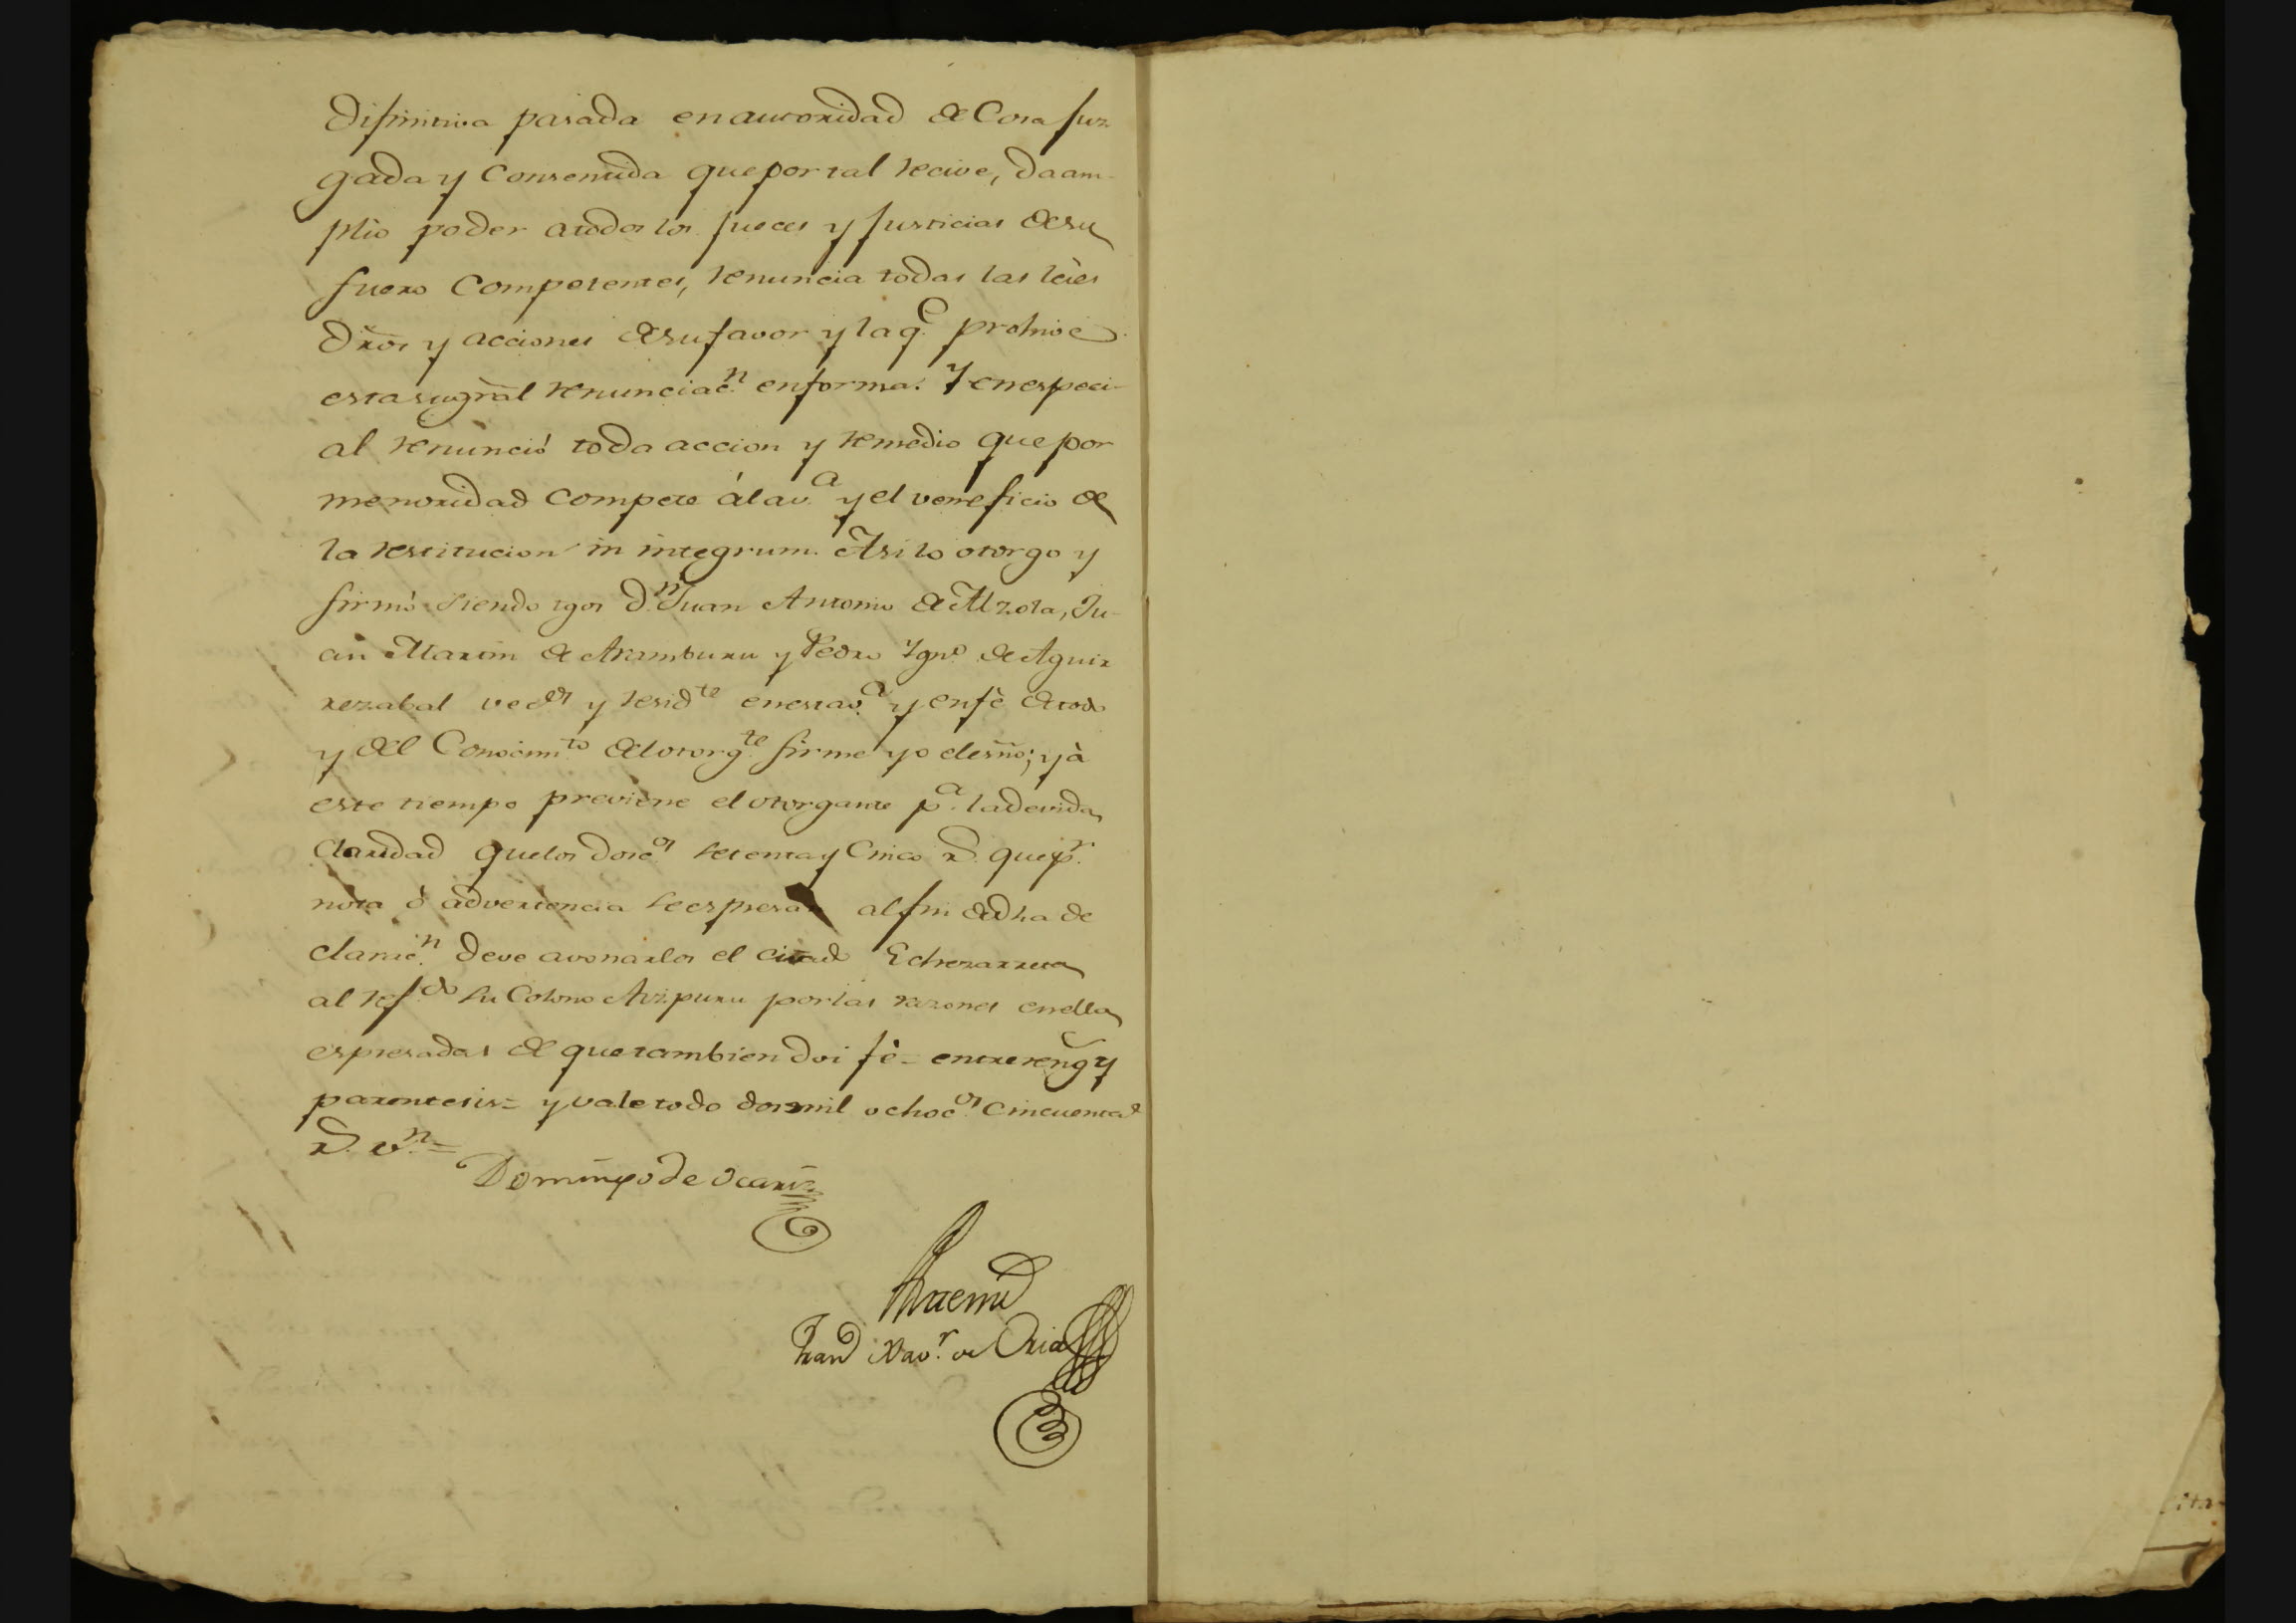 Difinitiva pasada en autoridad de Cosa Juz
gada y Consentida que por tal recive, da am-
plio poder a todos los Jueces y Justicias de su
fuero Competentes, renuncia todas las leies
dr̃os y acciones de su favor y la q.e prohive
esta su gr̃al renunciac.n en forma. Y en especi-
al renunció toda accion y remedio que por
menoridad Compete á la v.a y el veneficio de
la restitucion in integrum. Asi lo otorgo y
firmó siendo tgos D.n Juan Antonio de Alzola, Ju-
an Martin de Aramburu y Pedro Ygn.o de Aguir
rezabal vec.os y resid.te en esta v.a y en fè de todo
y del Conocim.to del otorg.te firme yo el esño; y à
este tiempo previene el otorgante p.a la devida
Claridad que los dosc.os setenta y Cinco r.s que p.r
nota ò advertencia se espresan al fin de dha de
clarac.n deve avonarlos el citado Echezarreta
al ref.do su Colono Aizpuru por las razones en ella
espresadas de que tambien doi fè = entrereng.s y
parentesis = y vale todo dos mil ochoc.os Cincuenta
r.s v.n =
Domingo de Ocariz
Ante mi
Fran.co Xav.r de Oria